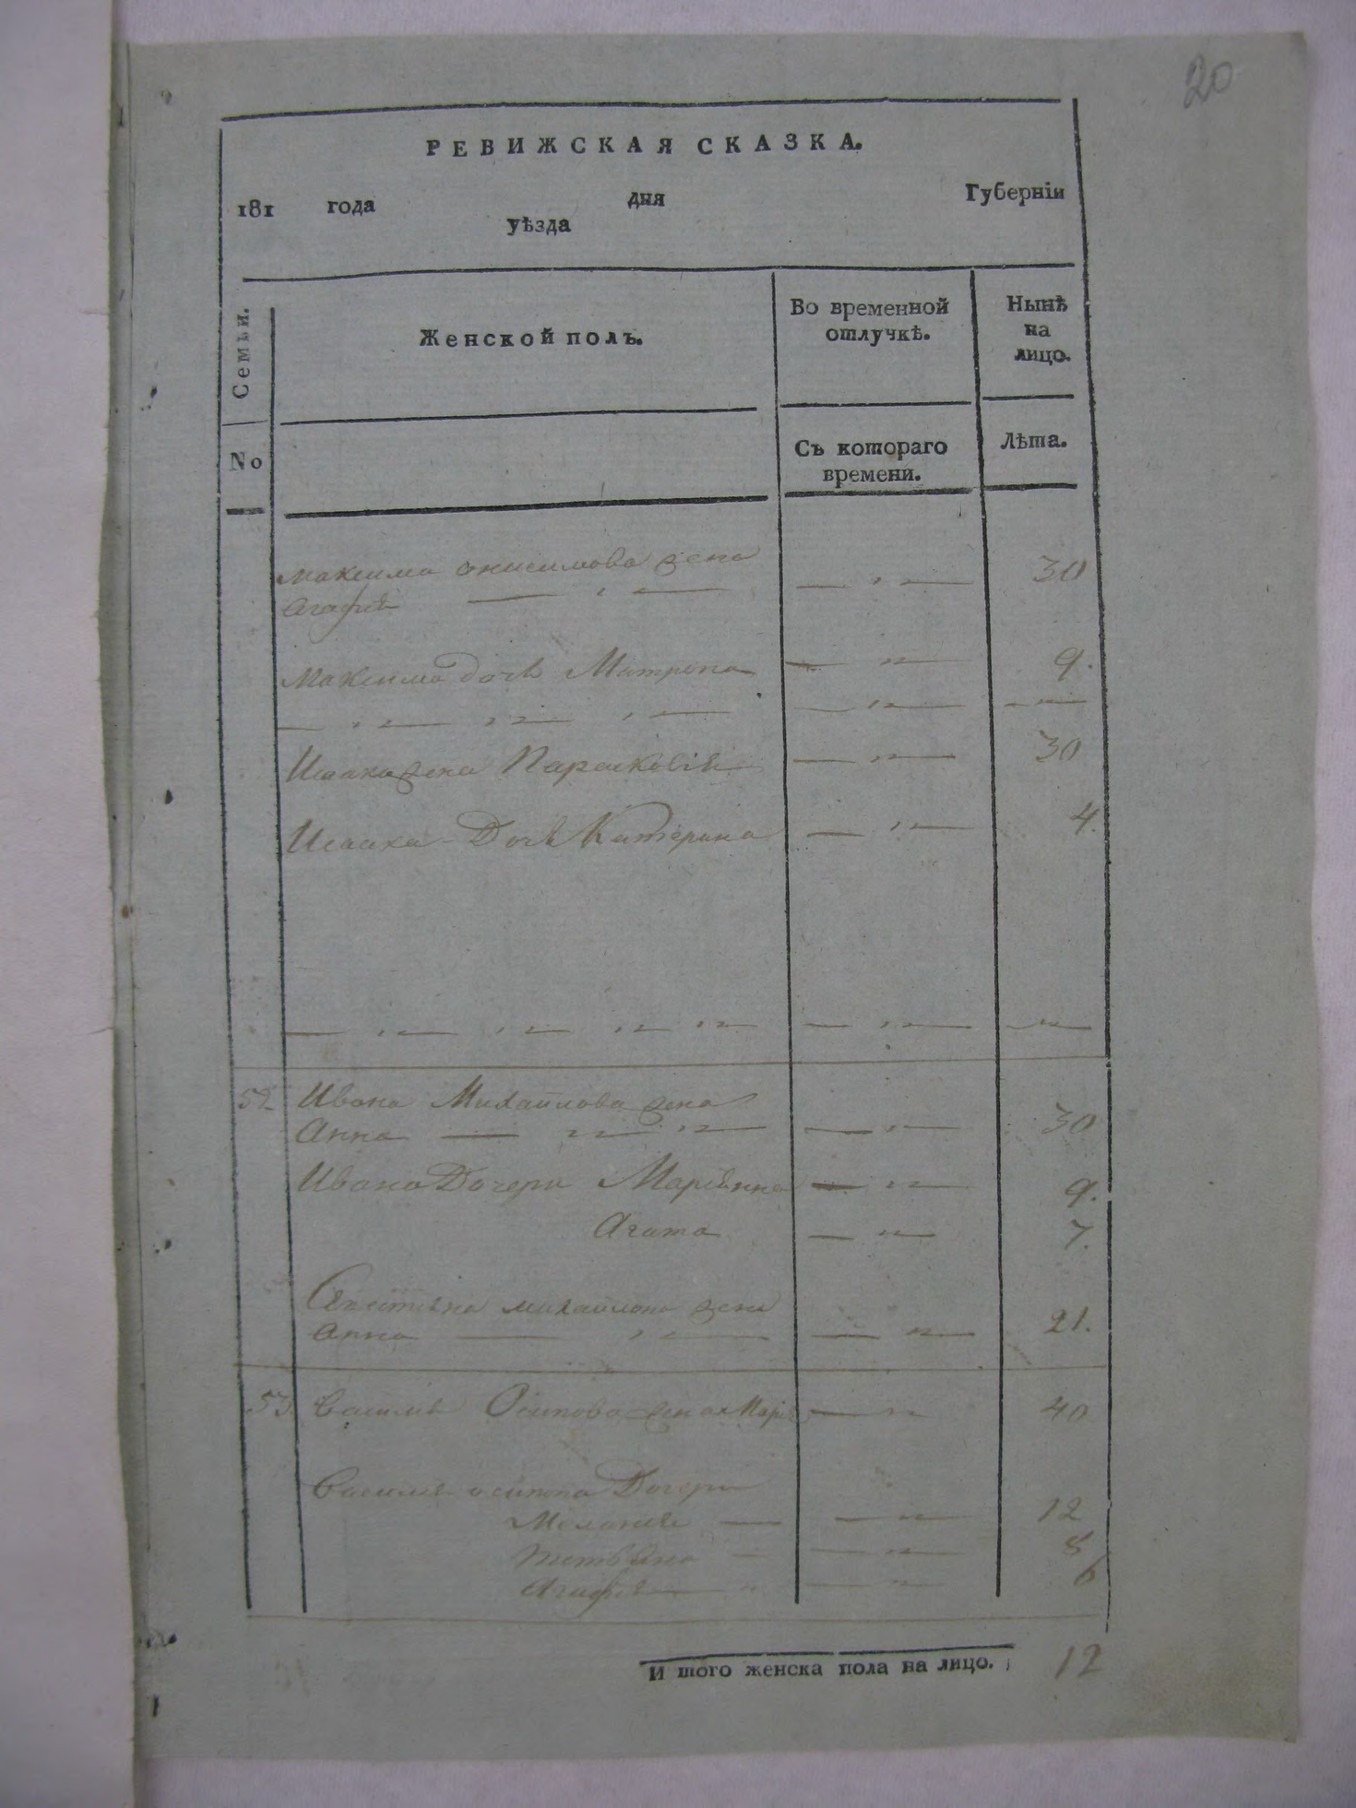 20
РЕВИЖСКАЯ СКАЗКА.
181 года дня Губерніи
уѣзда
Семьи.
Женской полъ.
Во временной отлучкѣ.
Нынѣ на лицо.
No
Съ котораго времени.
Лѣта.
Максима Онисимова жена
Агафiя 30
Максима дочь Матрена 9.
Исаака жена Парасковiя 30
Исаака Дочь Катерина 4.
52 Ивана Михайлова жена
Анна 30
Ивана Дочери Марiянна 9.
Агата 7.
михайлова жена
Анна 21.
53 Василiя Осипова жена Марiя 40
Василiя осипова Дочери
Меланiя 12
8
Агафiя 6
И того женска пола на лицо. 12